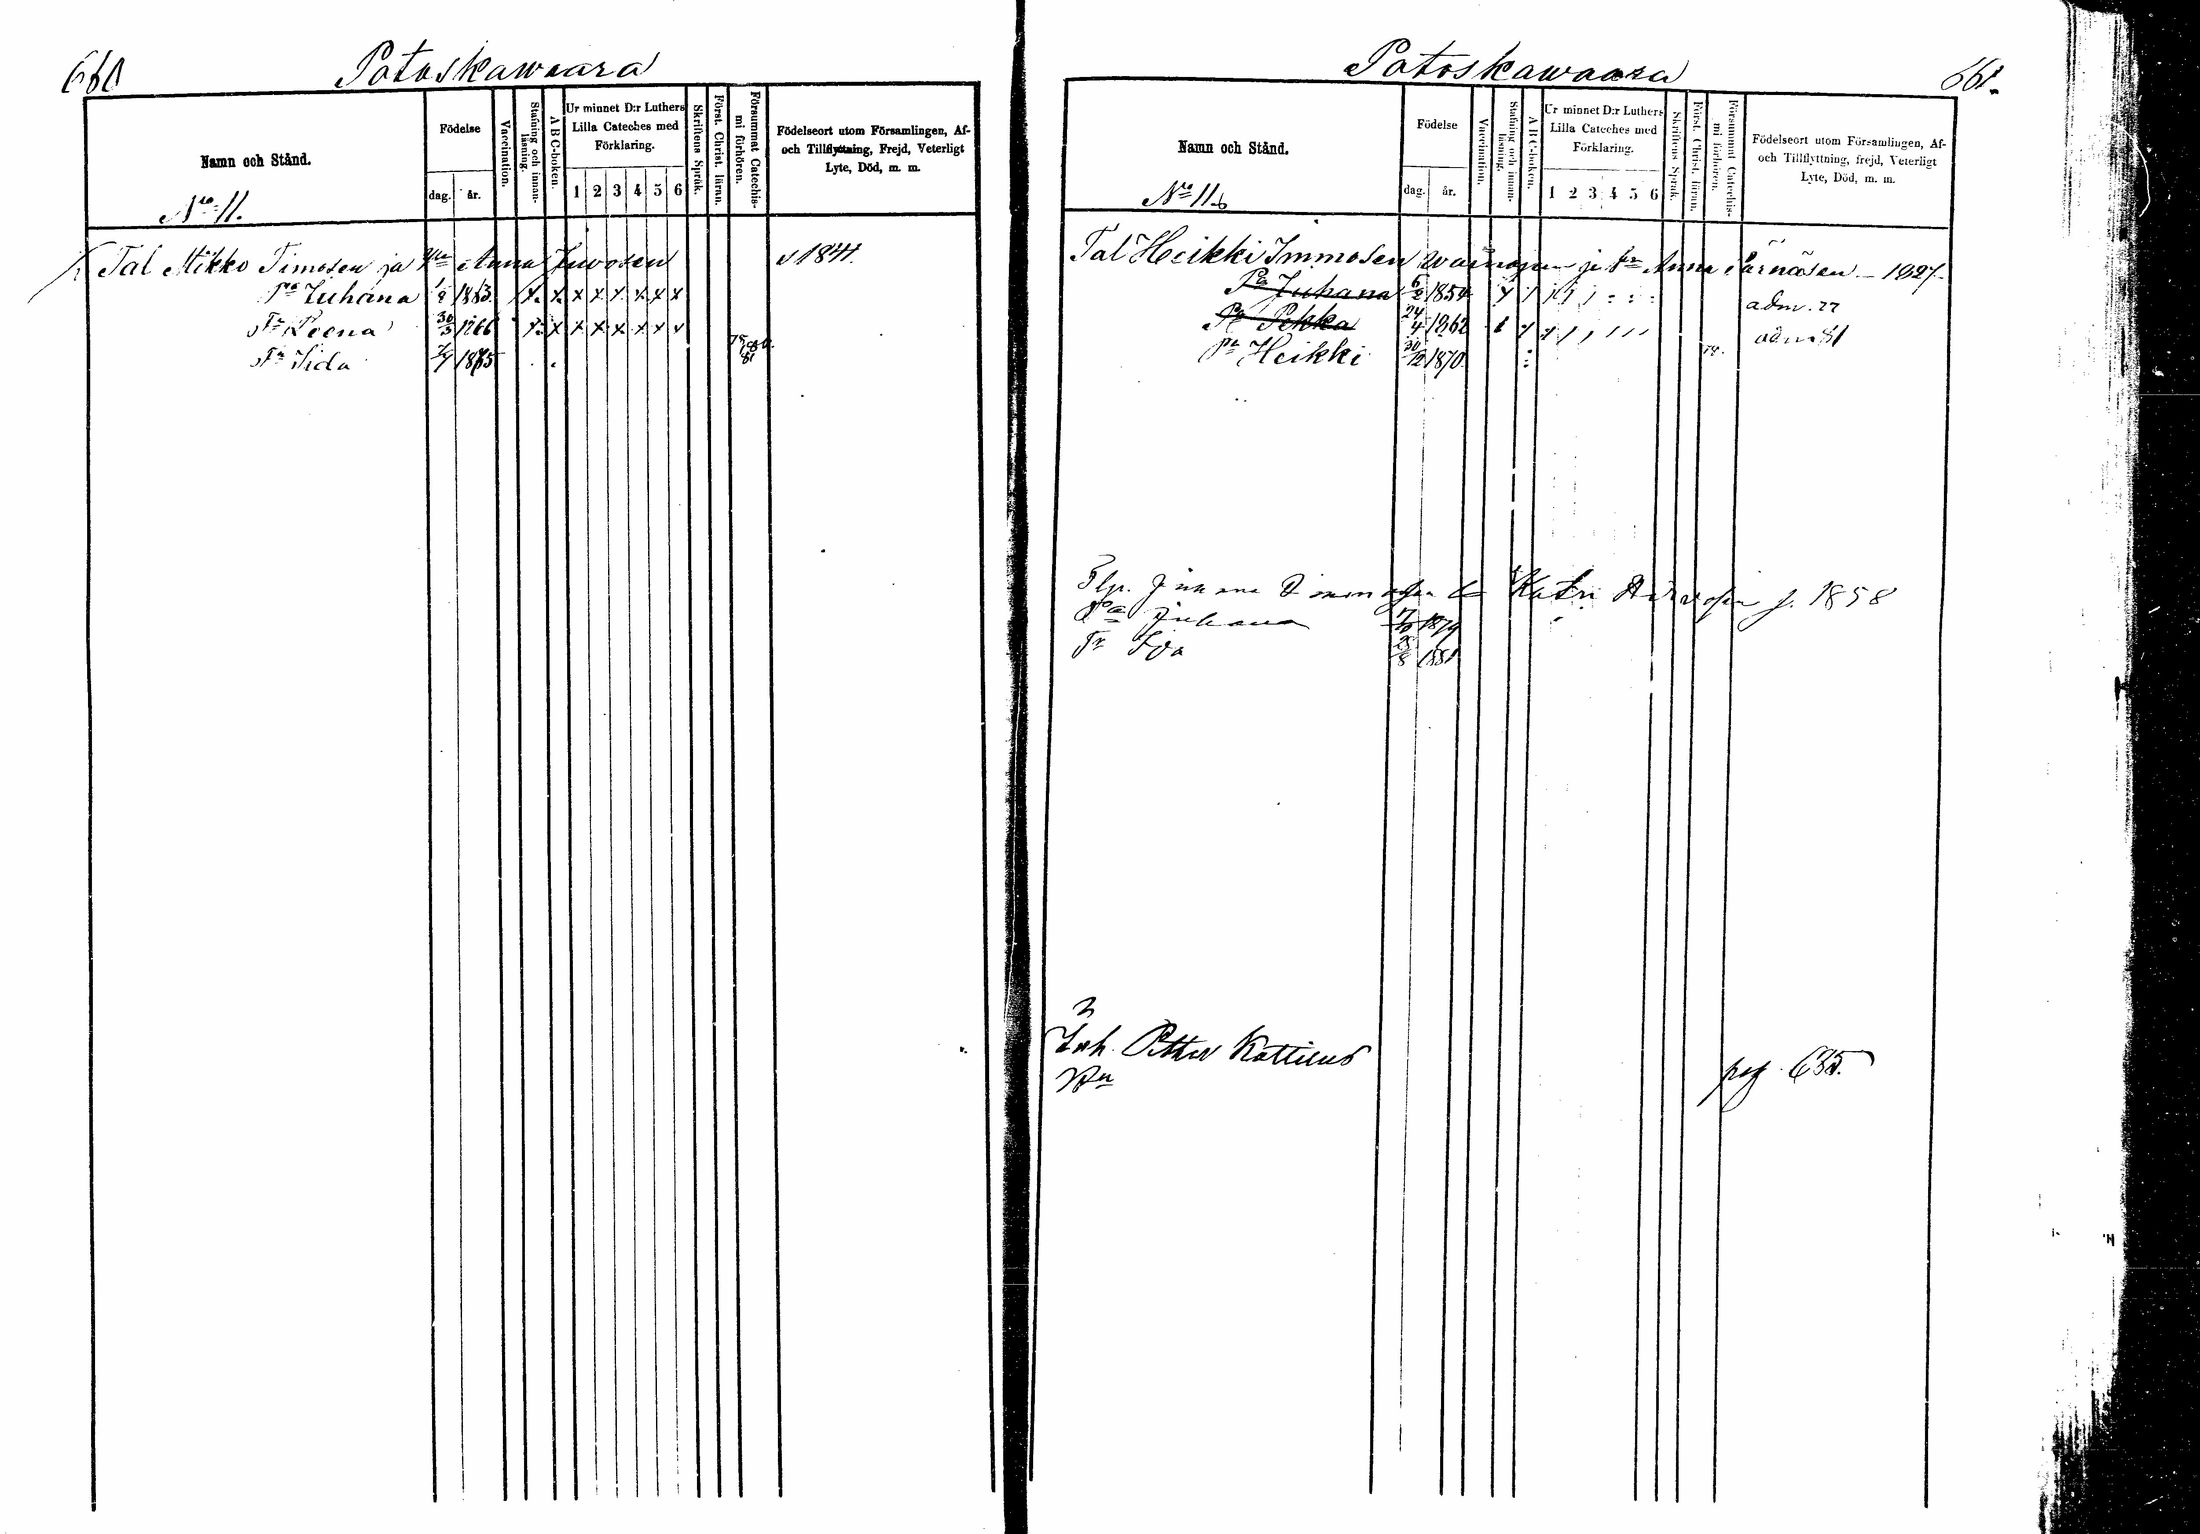 660
Potoskawaara
Namn och Stånd.
Födelse
dag. år.
Vaccination.
Stafning och innan-läsning.
A B C-boken.
Ur minnet D:r Luthers
Lilla Cateches med
Förklaring.
1 2 3 4 5 6
Skriftens Språk.
Först. Christ. läran.
Försummat Catechis-
mi förhören.
Födelseort utom Församlingen, Af-
och Tillflyttning, Frejd, Veterligt
Lyte, Död, m. m.
No 11.
Tal Mikko Timosen ja Anna Juvosen 1841.
Pa Juhana 1863
Tr Leena 30/3 1866
Tr Iida 1875
Potoskawaara
661.
Namn och Stånd.
Födelse
dag. år.
Vaccination.
Stafning och innan-läsning.
A B C-boken.
Ur minnet D:r Luthers
Lilla Cateches med
Förklaring.
1 2 3 4 5 6
Skriftens Språk.
Först. Christ. läran.
Försummat Catechis-
mi förhören.
Födelseort utom Församlingen, Af-
och Tillflyttning, frejd, Veterligt
Lyte, Död, m. m.
No 11 b
Tal Heikki Immosen ja Anna Pärnäsen 1827.
Pa Juhana 6/2 1854 adm. 77
Pa Pekka 24/4 1862 adm 81
Pa Heikki 30/12 1870. 79.
Juhana Katri f. 1858
Pa Juhana 1879
Tr 1881
Inh. Petter Kottilus
pag. 635.